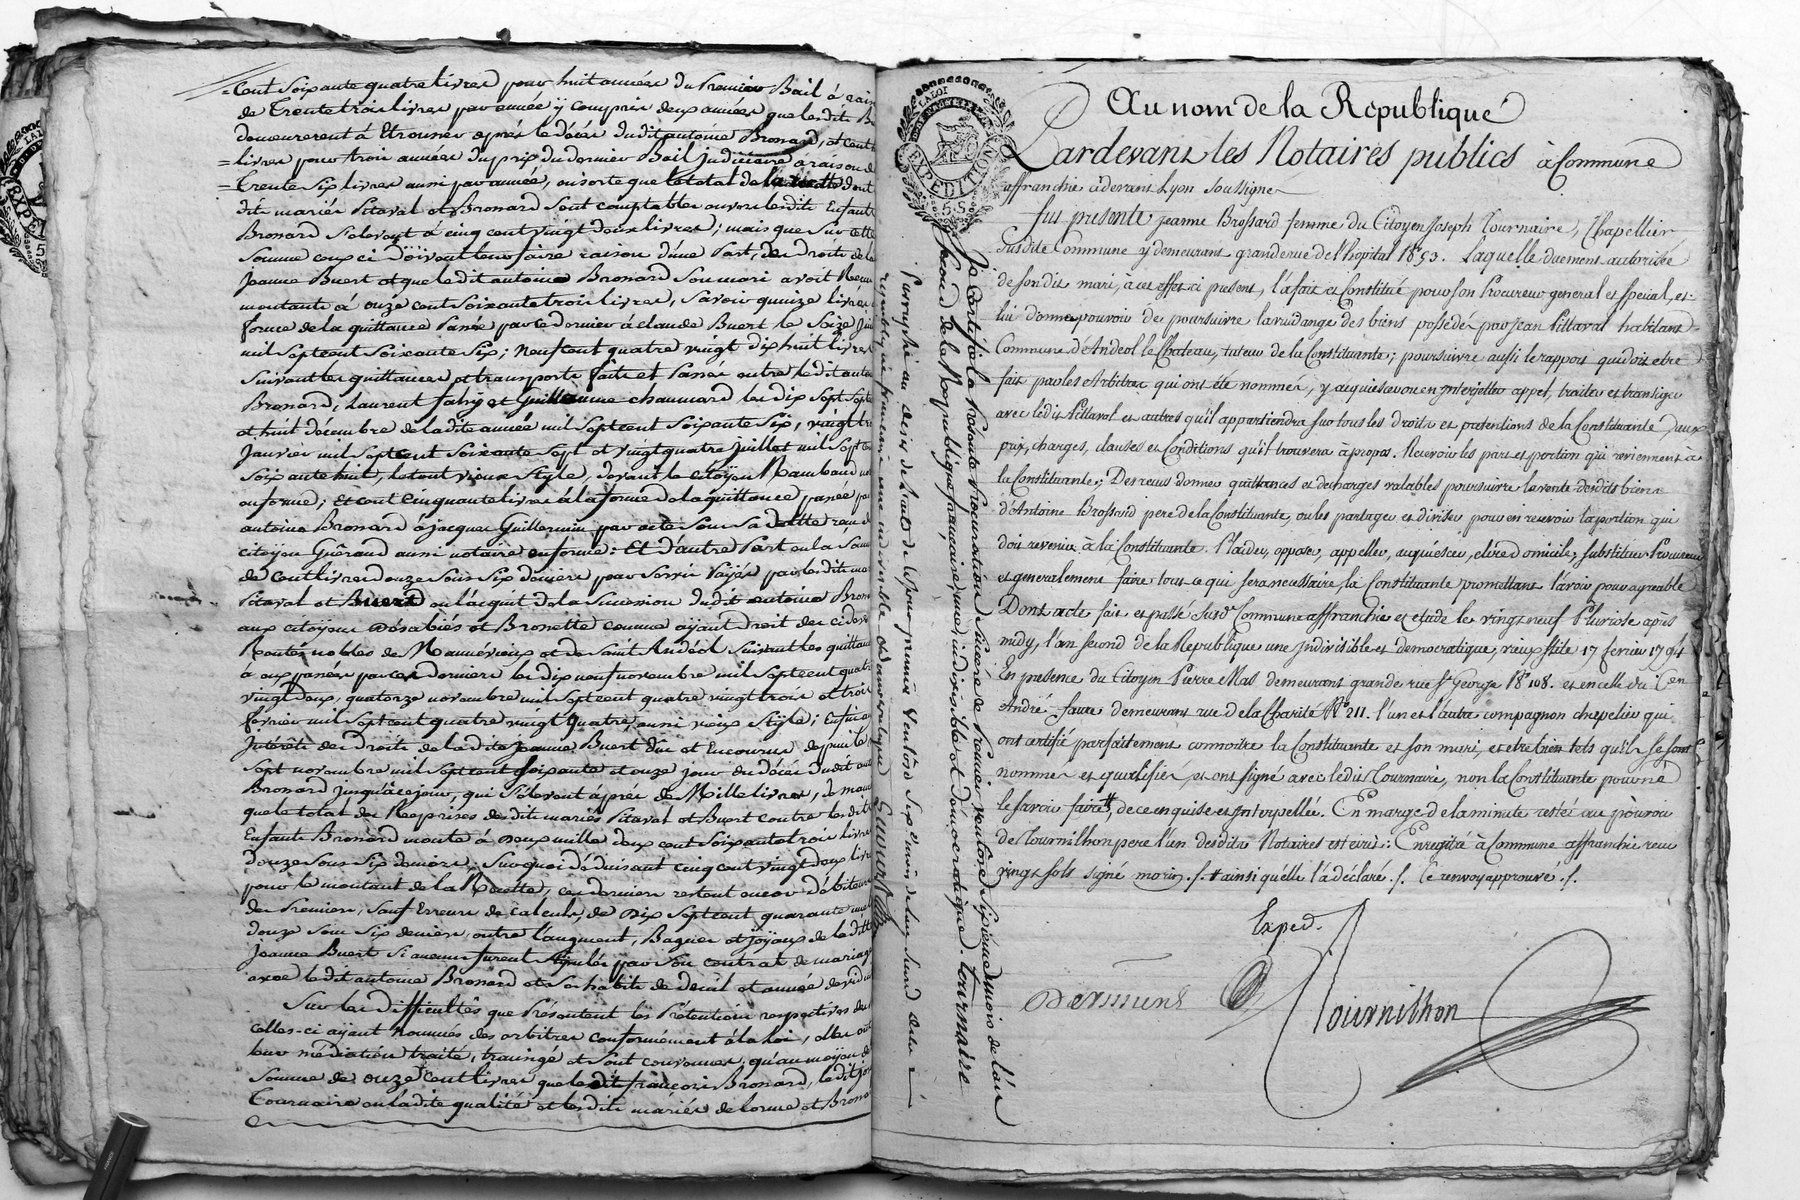 Cent soixante quatre livres pour huit années du Premier Bail à rain
de Trente trois livres par année y compris deux années que lesdits B
demeurerent à Etrousser après le décès dudit antoine Bronard, et cent
livres pour trois années du prix du dernier Bail judiciaire à raison de
Trente Six livres aussi par année, ensorte que le total de la recette dont
dits mariés Pitaval et Bronard sont comptables envers lesdits Enfants
Bronard s'elevent à cinq cent vingt deux livres; mais que sur cette
Somme ceux ci doivent leur faire raison d'une Part, des droits de la
Jeanne Buert et que ledit antoine Bronard son mari avoit Recus
montants à onze cent soixante trois livres, savoir quinze livres
forme de la quittance Passée par ce dernier à claude Buert le Seize Juin
mil Sept cent Soixante Six; neuf cent quatre vingt dix huit livres
Suivant les quittances et transports faits et Passés entre ledit antoine
Bronard, Laurent fahy et Guillaume chaumard les dix sept Septe
et huit décembre de ladite année mil Sept cent soixante Six, vingt tr
Janvier mil Sept cent Soixante Sept et vingt quatre juillet mil Sept ce
Soixante huit, le tout vieux Style, devant le citoyen Rambaud no
en forme; Et cent cinquante livres à la forme de la quittance passée pa
antoine Bronard à jacques Guillermin par acte sous sa datte recu d
citoyen Guéraud aussi notaire en forme: Et d'autre Part en la Som
de cent livres douze Sous Six deniers pour Servis Payés par lesdits ma
Pitaval et Buert en l'acquit de la Succession dudit antoine Bron
aux citoyens Désabiés et Bronette comme ayant droit des cidev
Rentes nobles de Mannévieux et de Saint Andéol Suivant les quittan
à eux passées par ces derniers les dix neuf novembre mil Sept cent quatre
vingt Deux, quatorze novembre mil Sept cent quatre vingt trois et trois
fevrier mil Sept cent quatre vingt quatre, aussi vieux Style; Enfin en
Intérêts des Droits de ladite jeanne Buert dûs et Encourus depuis le
Sept novembre mil Sept cent Soixante et onze jour du décès dudit ant
Bronard jusqu'à ce jour, qui s'elevent à près de Mille livres, de mani
que le total des Reprises desdits mariés Pitaval et Buert contre lesdits
Enfants Bronard monte à Deux mille deux cent soixante trois livres
douze Sous Six deniers; Sur quoi déduisant cinq cent vingt deux liv
pour le montant de la Recette, ces derniers restent encor débiteurs
des Premiers, sauf Erreur de calculs, de Dix Sept cent quarante une l
douze sous Six deniers, outre l'augment, Bagues et joyaux de la ditte
Jeanne Buert Si aucuns furent Stipulés par son contrat de mariage
avec ledit antoine Bronard et Ses habits de deuil et année de viduit
Sur les difficultés que Présentent les Prétentions respectives des
celles-ci ayant nommés des arbitres conformément à la loi, elles ont
leur médiation traité, transigé et Sont convenus, qu'au moyen de
Somme de onze cent livres que ledit françois Bronard, ledit jos
Tournaire en ladite qualité et lesdits mariés delorme et Brona
Parraphé au desir de l'acte de ce jour primidi Ventôse Six.e mois de l'an Second de la
republique francaise une indivisible et democratique
Je Certifie la Présente Procuration Sincère ce Premier ventôse Sixième mois de l'an
Second de la Republique française une indivisible et démocratique. Tournaire
LA LOI
EXPEDITIONS
5 S
Au nom de la Republique
Pardevant les Notaires publics à Commune
affranchie cidevant Lyon Soussignés
fus presente Jeanne Brossard femme du Citoyen Joseph Tournaire, Chapellier
Susdite Commune y demeurant grande rue de l'hôpital N° 53. Laquelle duement autorisée
de son dit mari, à cet effet ci present, l'a fait et Constitué pour son Procureur general et special, et
lui donne pouvoir de poursuivre la vuidange des biens possédés par Jean Pittaval habitant
Commune d'Andeol le Chateau, tuteur de la Constituante; poursuivre aussi le rapport qui doit etre
fait par les Arbitres qui ont été nommés, y acquiescer ou en Interjetter appel, traiter et transiger
avec ledit Pittaval et autres qu'il appartiendra sur tous les droits et pretentions de la Constituante, aux
prix, charges, clauses et Conditions qu'il trouvera à propos. Recevoir les part et portion qui reviennent à
la Constituante; Des recus donner quittances et decharges valables poursuivre la vente desdits biens
d'Antoine Brossard pere de la Constituante, ou les partager et diviser pour en recevoir la portion qui
doit revenir à la Constituante. Plaider, opposer, appeller, acquiescer, elire domicile, substituer Procureur
et generalement faire tout ce qui sera necessaire, la Constituante promettant l'avoir pour agreable
Dont acte fait et passé Susd.e Commune affranchie et etude le vingt neuf Pluviose après
midy, l'an second de la Republique une Indivisible et democratique, vieux stile 17 fevrier 1794
En presence du Citoyen Pierre Mas demeurant grande rue St George N° 108. et en celle du C.en
André faure demeurant rue de la Charité N° 211. l'un et l'autre compagnon chapelier qui
ont certifié parfaitement connoitre la Constituante et son mari, et etre bien tels qu'ils se sont
nommés et qualifiés, et ont signé avec ledit Tournaire, non la Constituante pour ne
le savoir faire #, de ce enquise et Interpellée. En marge de la minute restée au pouvoir
de Tournilhon pere l'un desdits Notaires est ecrit: Enregitré à Commune affranchie recu
vingt sols signé morin ./. # ainsi qu'elle l'a déclaré ./. le renvoy approuvé ./.
Exped.
Tournilhon